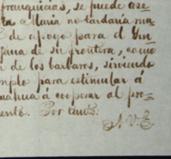 franquicias, se puede ase
ta a Maria no tardaria mu
de apoyo para el Gu
jana de su frontera, como
de los barbaros, sirviendo
mplo para estimular á
mahua á cooperar al pro
ento.